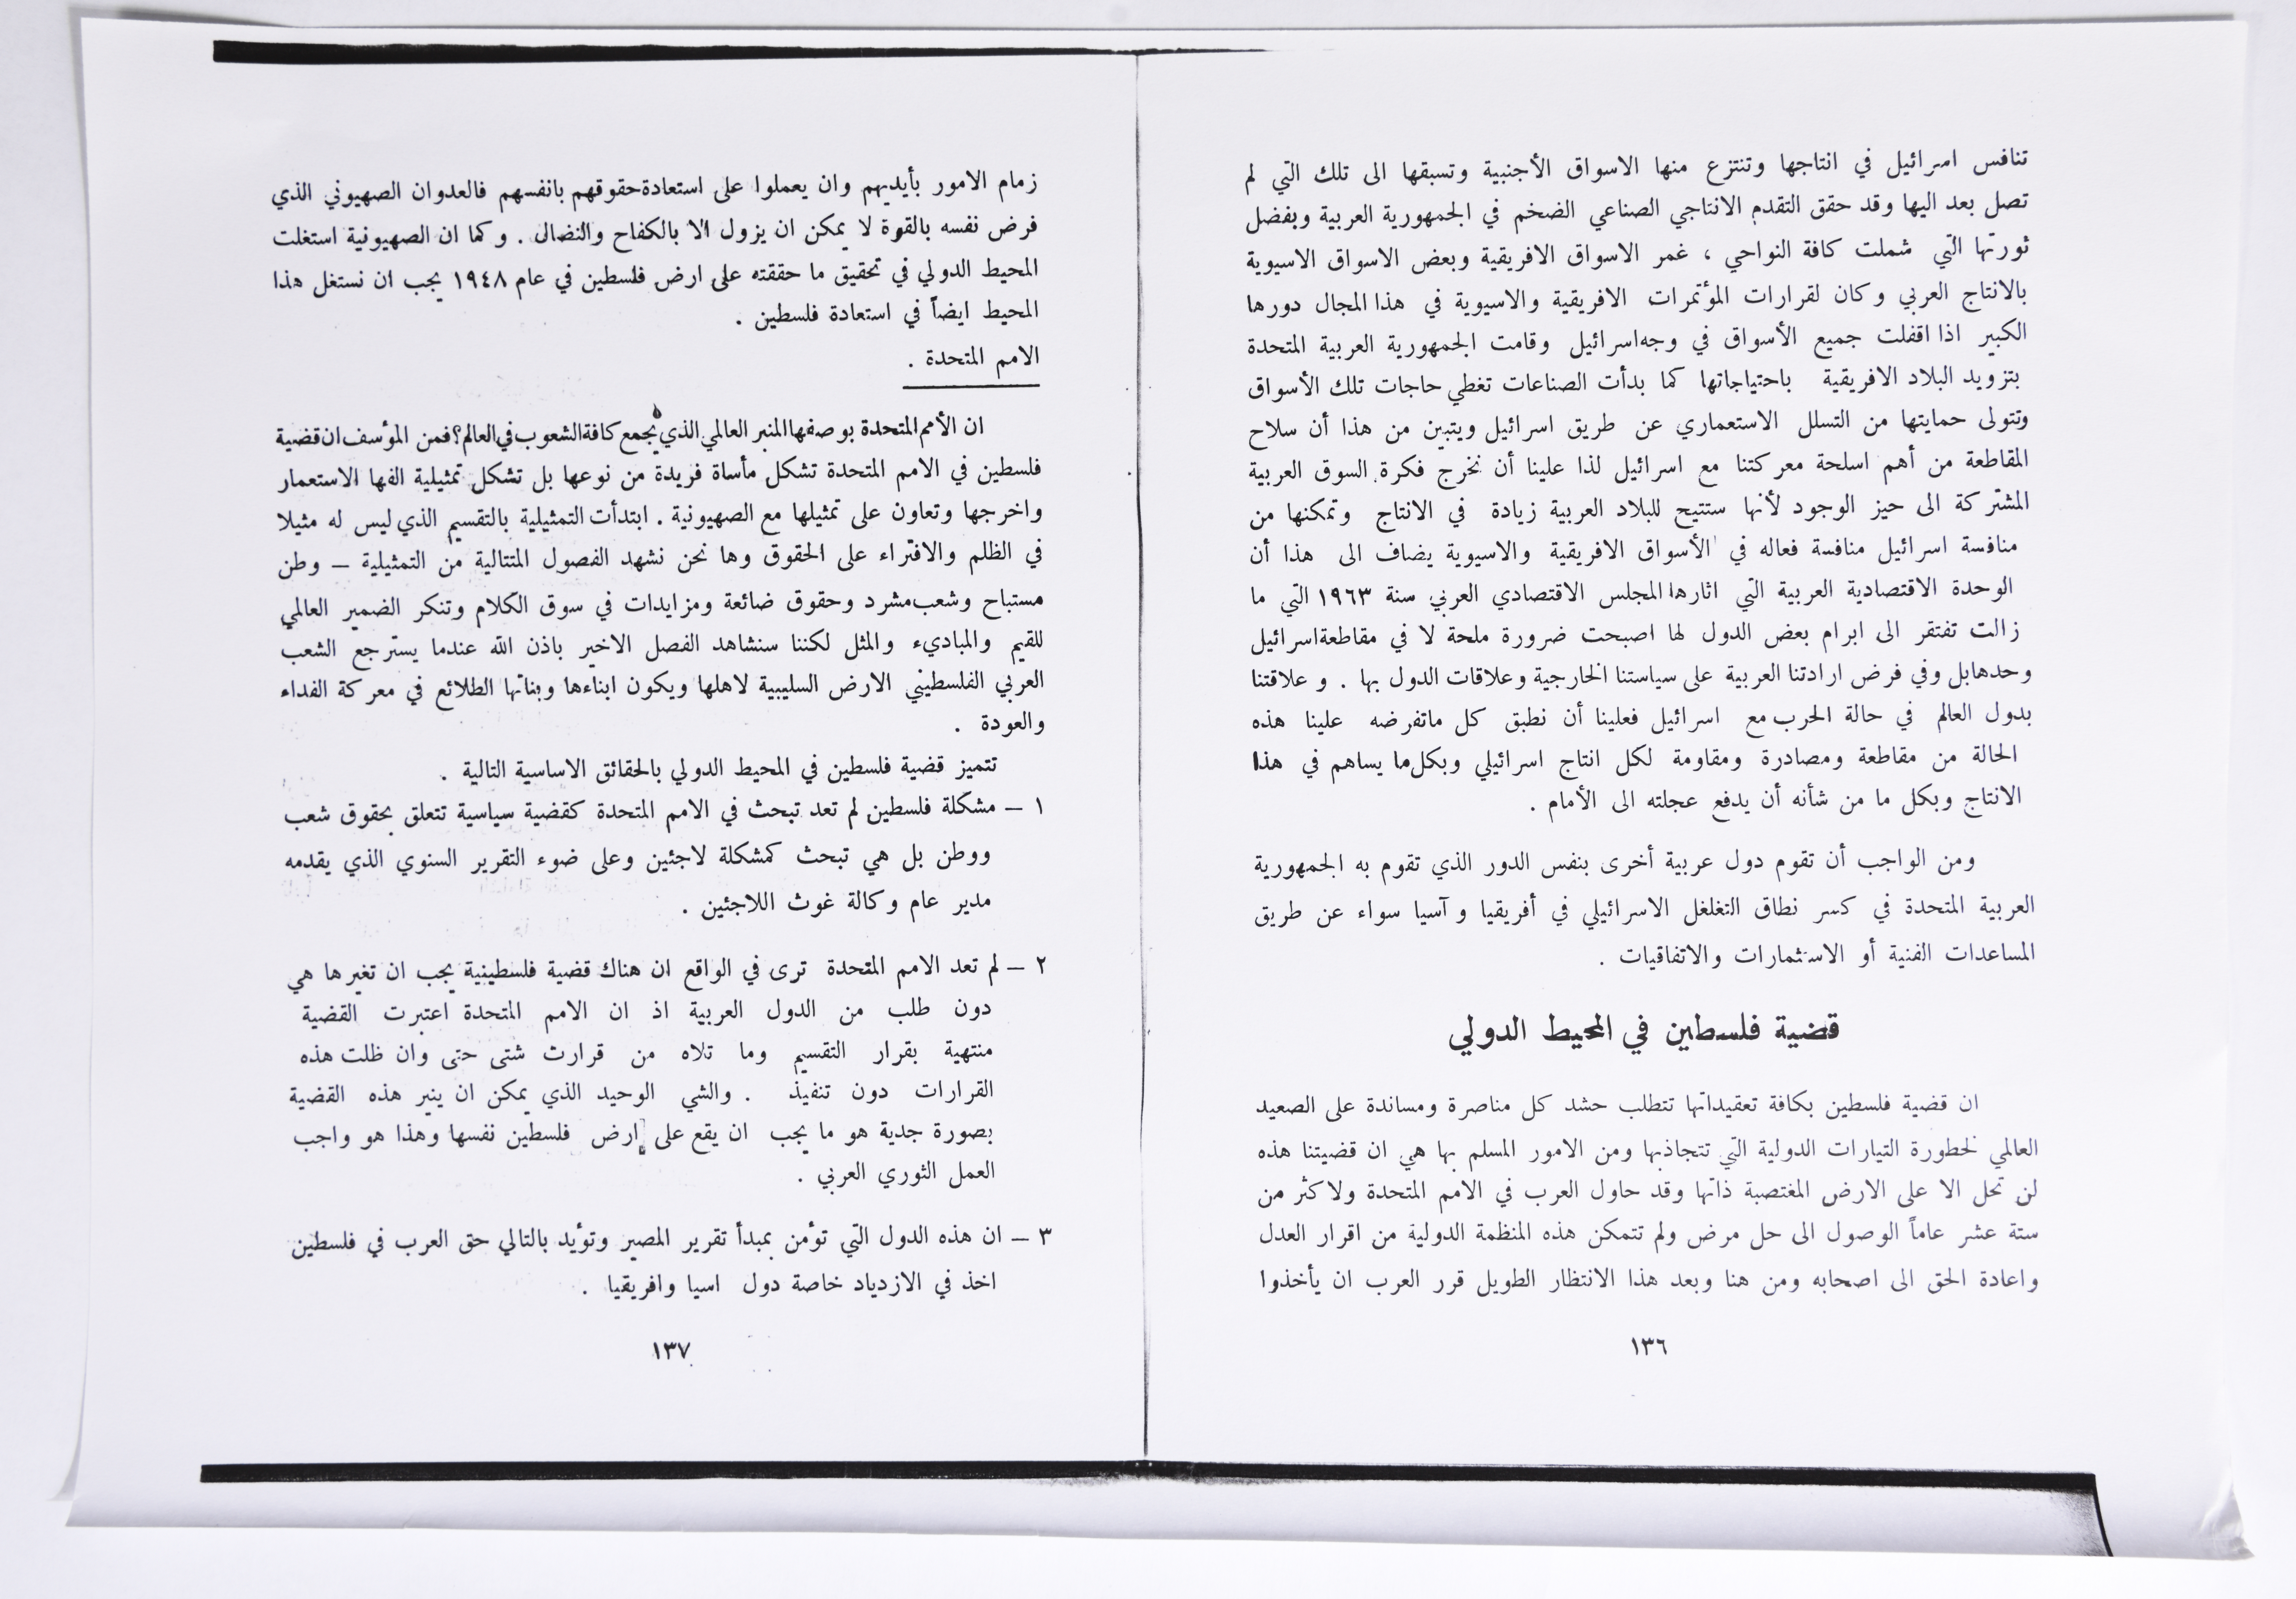 تنافس اسرائيل في انتاجها وتنتزع منها الاسواق الأجنبية وتسبقها الى تلك التي لم
تصل بعد اليها وقد حقق التقدم الانتاجي الصناعي الضخم في الجمهورية العربية وبفضل
ثورتها التي شملت كافة النواحي ، غمر الاسواق الافريقية وبعض الاسواق الاسيوية
بالانتاج العربي وكان لقرارات المؤتمرات الافريقية والاسيوية في هذا المجال دورها
الكبير اذا اقفلت جميع الأسواق في وجه اسرائيل وقامت الجمهورية العربية المتحدة
بتزويد البلاد الافريقية باحتياجاتها كما بدأت الصناعات تغطي حاجات تلك الأسواق
وتتولى حمايتها من التسلل الاستعماري عن طريق اسرائيل ويتبين من هذا أن سلاح
المقاطعة من أهم اسلحة معركتنا مع اسرائيل لذا علينا أن نخرج فكرة السوق العربية
المشتركة الى حيز الوجود لأنها ستتيح للبلاد العربية زيادة في الانتاج وتمكنها من
منافسة اسرائيل منافسة فعاله في الأسواق الافريقية والاسيوية يضاف الى هذا أن
الوحدة الاقتصادية العربية التي اثارها المجلس الاقتصادي العربي سنة ١٩٦٣ التي ما
زالت تفتقر الى ابرام بعض الدول لها اصبحت ضرورة ملحة لا في مقاطعة اسرائيل
وحدها بل وفي فرض ارادتنا العربية على سياستنا الخارجية وعلاقات الدول بها . وعلاقتنا
بدول العالم في حالة الحرب مع اسرائيل فعلينا أن نطبق كل ماتفرضه علينا هذه
الحالة من مقاطعة ومصادرة ومقاومة لكل انتاج اسرائيلي وبكل ما يساهم في هذا
الانتاج وبكل ما من شأنه أن يدفع عجلته الى الأمام .
ومن الواجب أن تقوم دول عربية أخرى بنفس الدور الذي تقوم به الجمهورية
العربية المتحدة في كسر نطاق التغلغل الاسرائيلي في أفريقيا وآسيا سواء عن طريق
المساعدات الفنية أو الاستثمارات والاتفاقيات .
قضية فلسطين في المحيط الدولي
ان قضية فلسطين بكافة تعقيداتها تتطلب حشد كل مناصرة ومساندة على الصعيد
العالمي لخطورة التيارات الدولية التي تتجاذبها ومن الامور المسلم بها هي ان قضيتنا هذه
لن تحل الا على الارض المغتصبة ذاتها وقد حاول العرب في الامم المتحدة ولاكثر من
ستة عشر عاماً الوصول الى حل مرض ولم تتمكن هذه المنظمة الدولية من اقرار العدل
واعادة الحق الى اصحابه ومن هنا وبعد هذا الانتظار الطويل قرر العرب ان يأخذوا
١٣٦
زمام الامور بأيديهم وان يعملوا على استعادة حقوقهم بانفسهم فالعدوان الصهيوني الذي
فرض نفسه بالقوة لا يمكن ان يزول الا بالكفاح والنضال . وكما ان الصهيونية استغلت
المحيط الدولي في تحقيق ما حققته على ارض فلسطين في عام ١٩٤٨ يجب ان نستغل هذا
المحيط ايضاً في استعادة فلسطين .
الامم المتحدة .
ان الأمم المتحدة بوصفها المنبر العالمي الذي يجمع كافة الشعوب في العالم؟ فمن المؤسف ان قضية
فلسطين في الامم المتحدة تشكل مأساة فريدة من نوعها بل تشكل تمثيلية الفها الاستعمار
واخرجها وتعاون على تمثيلها مع الصهيونية . ابتدأت التمثيلية بالتقسيم الذي ليس له مثيلا
في الظلم والافتراء على الحقوق وها نحن نشهد الفصول المتتالية من التمثيلية — وطن
مستباح وشعب مشرد وحقوق ضائعة ومزايدات في سوق الكلام وتنكر الضمير العالمي
للقيم والمباديء والمثل لكننا سنشاهد الفصل الاخير باذن الله عندما يسترجع الشعب
العربي الفلسطيني الارض السليبية لاهلها ويكون ابناءها وبناتها الطلائع في معركة الفداء
والعودة .
تتميز قضية فلسطين في المحيط الدولي بالحقائق الاساسية التالية .
١ — مشكلة فلسطين لم تعد تبحث في الامم المتحدة كقضية سياسية تتعلق بحقوق شعب
ووطن بل هي تبحث كمشكلة لاجئين وعلى ضوء التقرير السنوي الذي يقدمه
مدير عام وكالة غوث اللاجئين .
٢ — لم تعد الامم المتحدة ترى في الواقع ان هناك قضية فلسطينية يجب ان تغيرها هي
دون طلب من الدول العربية اذ ان الامم المتحدة اعتبرت القضية
منتهية بقرار التقسيم وما تلاه من قرارت شتى حتى وان ظلت هذه
القرارات دون تنفيذ . والشي الوحيد الذي يمكن ان ينير هذه القضية
بصورة جدية هو ما يجب ان يقع على ارض فلسطين نفسها وهذا هو واجب
العمل الثوري العربي .
٣ — ان هذه الدول التي تؤمن بمبدأ تقرير المصير وتؤيد بالتالي حق العرب في فلسطين
اخذ في الازدياد خاصة دول اسيا وافريقيا .
١٣٧